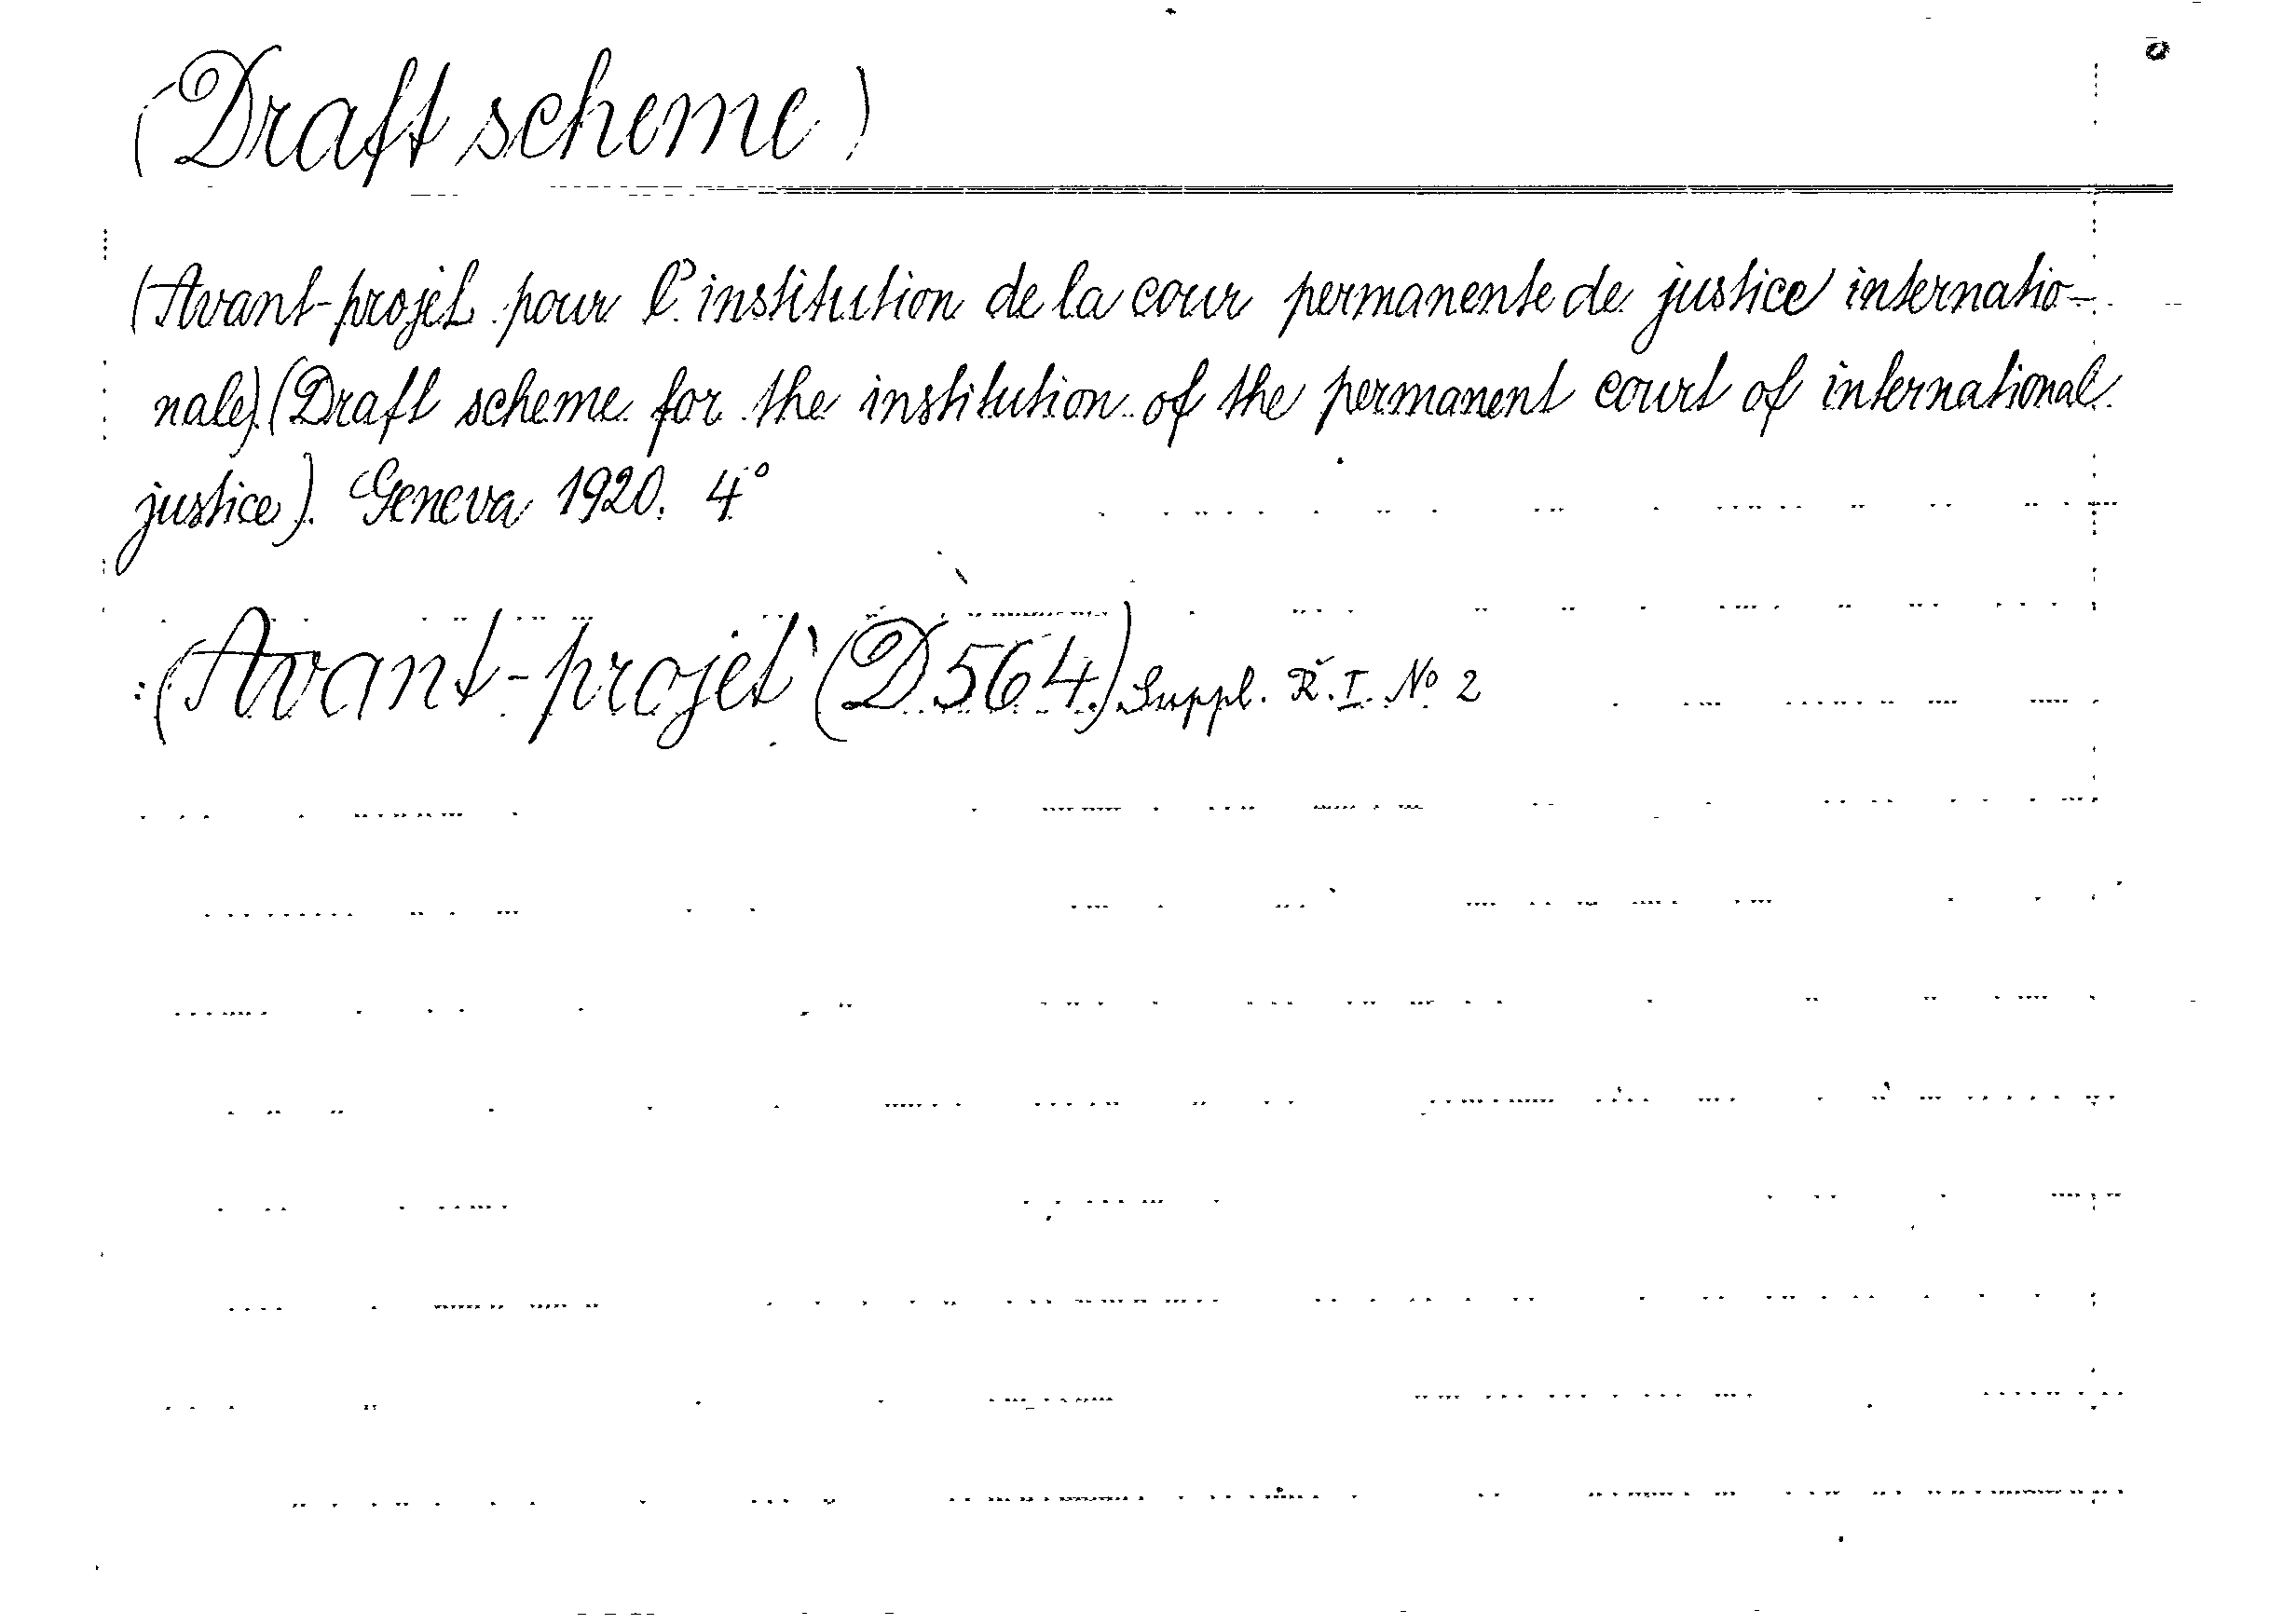 (Draft scheme)
(Avant-projet pour l'institution de la cour permanente de justice internatio-
nale).(Draft scheme for the institution of the permanent court of international
justice). Geneva 1920. 4°
:(Avant-projet (D564.) Suppl. Ř.I. № 2